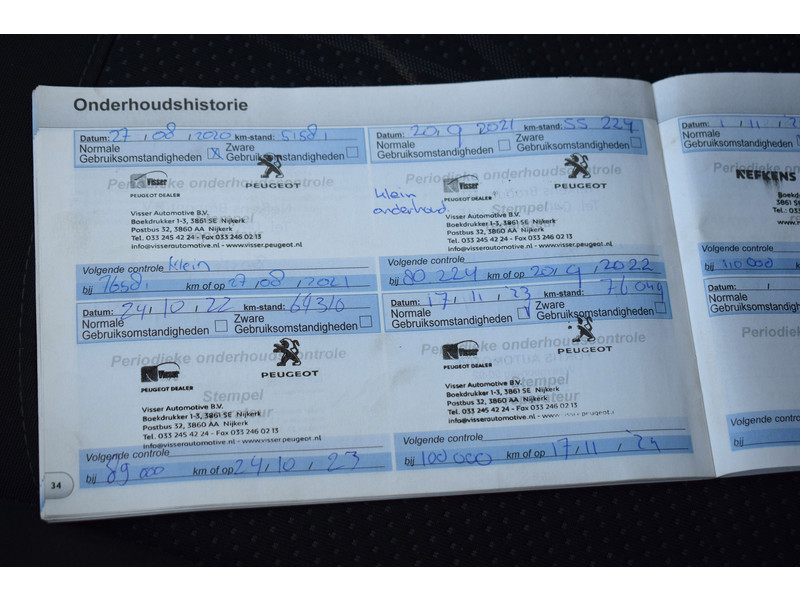 Onderhoudshistorie
Datum: 27, 08, 2020 km-stand: 51581
Normale Gebruiksomstandigheden X Zware Gebruiksomstandigheden
Periodieke onderhoudscontrole
Visser
PEUGEOT DEALER
PEUGEOT
Visser Automotive B.V.
Boekdrukker 1-3, 3861 SE Nijkerk
Postbus 32, 3860 AA Nijkerk
Tel. 033 245 42 24 - Fax 033 246 02 13
info@visserautomotive.nl - www.visser.peugeot.nl
Volgende controle klein
bij 76581 km of op 27, 08, 2021
Datum: 20, 9 2021 km-stand: 55 224
Normale Gebruiksomstandigheden Zware Gebruiksomstandigheden
Periodieke onderhoudscontrole
klein
onderhoud
Visser
PEUGEOT DEALER
PEUGEOT
Stempel
Visser Automotive B.V.
Boekdrukker 1-3, 3861 SE Nijkerk
Postbus 32, 3860 AA Nijkerk
Tel. 033 245 42 24 - Fax 033 246 02 13
info@visserautomotive.nl - www.visser.peugeot.nl
Volgende controle
bij 80 224 km of op 20, 9, 2022
Datum: 24, 10, 22 km-stand: 64310
Normale Gebruiksomstandigheden Zware Gebruiksomstandigheden
Periodieke onderhoudscontrole
Visser
PEUGEOT DEALER
PEUGEOT
Stempel
Visser Automotive B.V.
Boekdrukker 1-3, 3861 SE Nijkerk
Postbus 32, 3860 AA Nijkerk
Tel. 033 245 42 24 - Fax 033 246 02 13
info@visserautomotive.nl - www.visser.peugeot.nl
Volgende controle
bij 89 000 km of op 24, 10, 23
Datum: 17, 11, '23 km-stand: 76 049
Normale Gebruiksomstandigheden Zware Gebruiksomstandigheden
Periodieke onderhoudscontrole
Visser
PEUGEOT DEALER
PEUGEOT
Stempel
Visser Automotive B.V.
Boekdrukker 1-3, 3861 SE Nijkerk
Postbus 32, 3860 AA Nijkerk
Tel. 033 245 42 24 - Fax 033 246 02 13
info@visserautomotive.nl - www.visser.peugeot.nl
Volgende controle
bij 100 000 km of op 17, 11, '24
34
Datum:
Normale
Gebruiksomstandigheden
NEFKENS
Volgende controle
bij 110 000 km
Datum:
Normale
Gebruiksomstandigheden
Periodieke
Volgende controle
bij